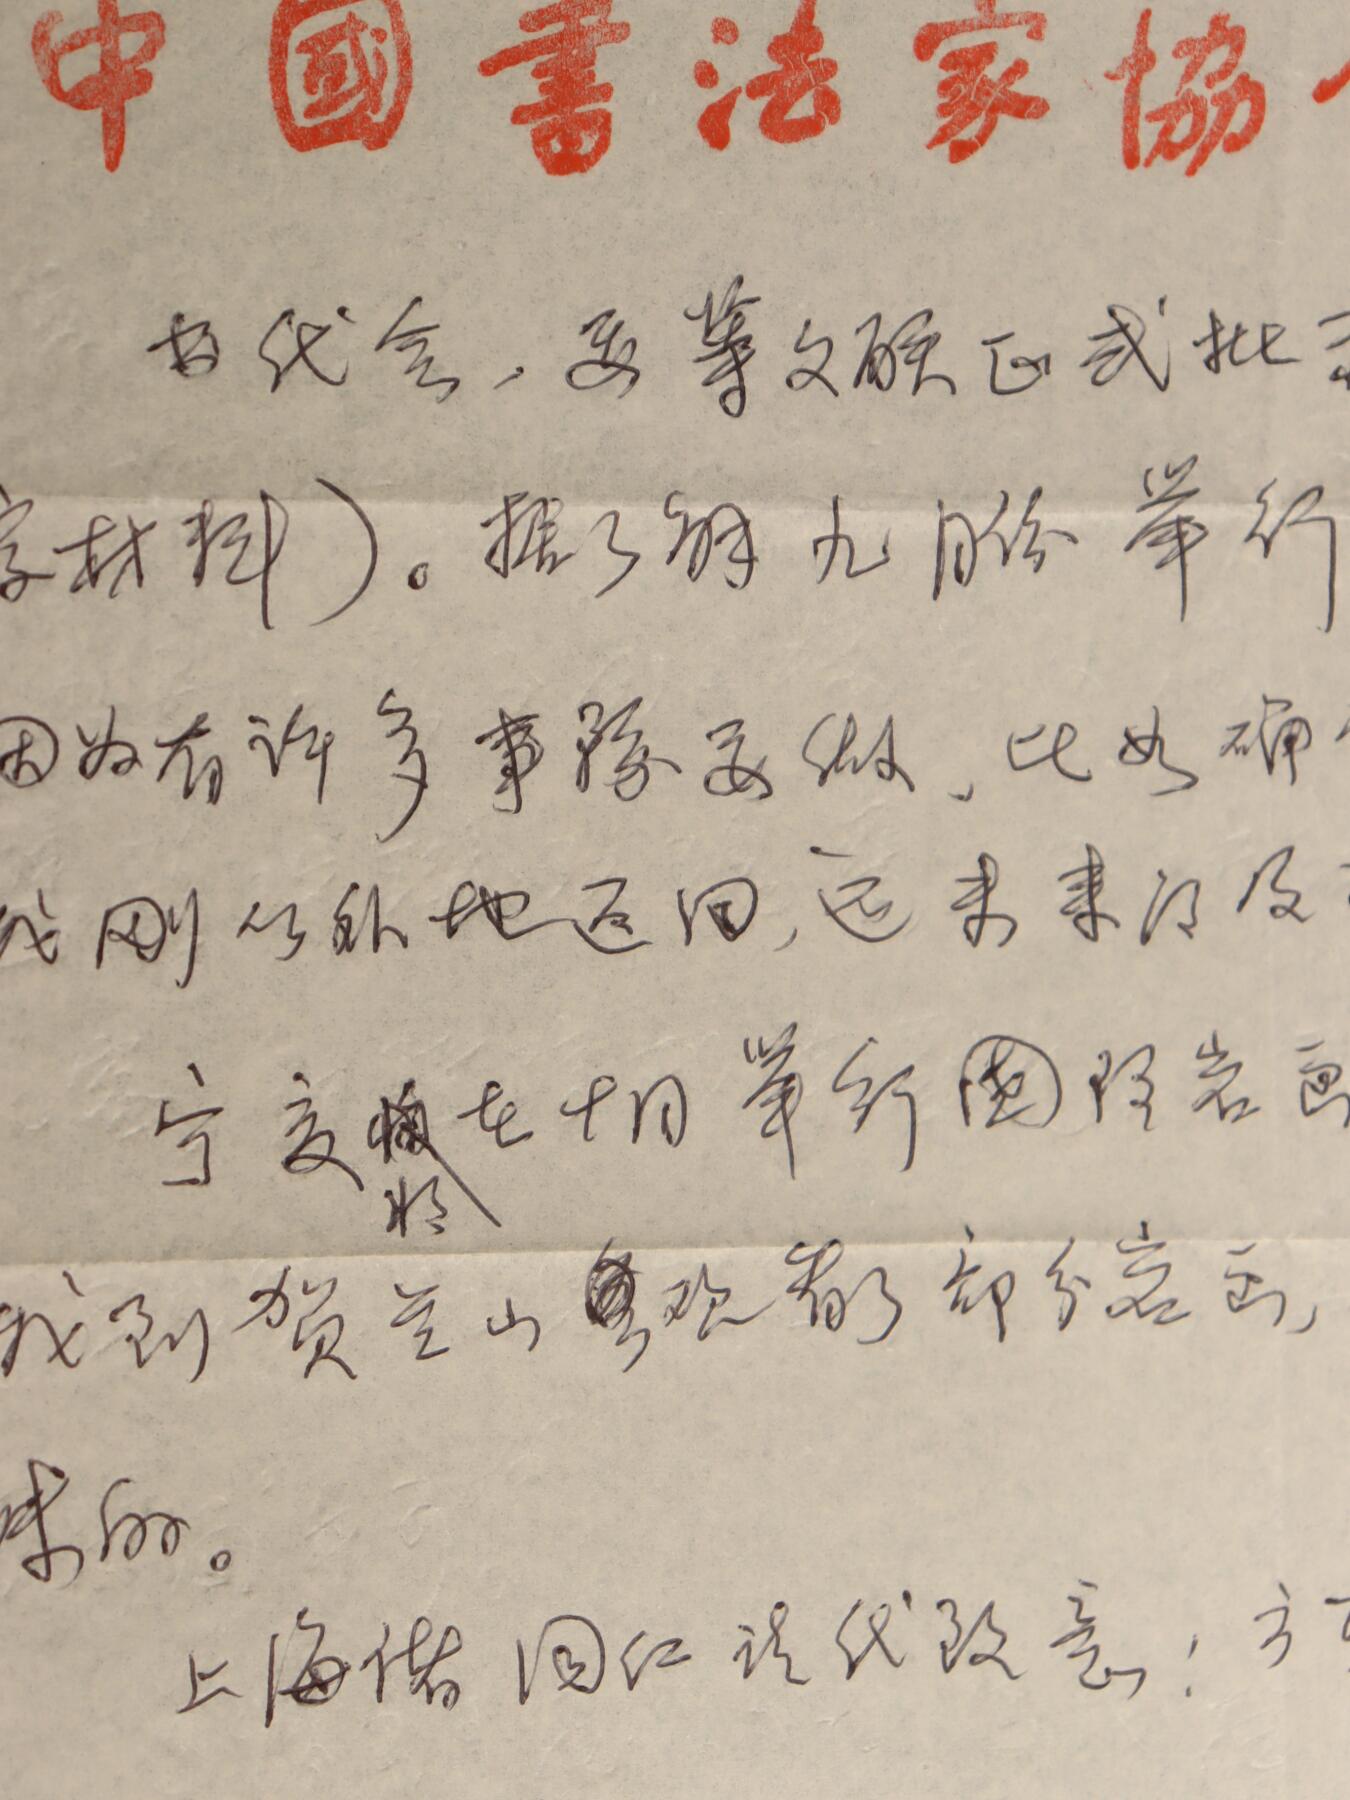 中國書法家協
书代会，要等文联正式批
字材料）。据了解九月份举行
因为有许多事务要做、比如确
我刚从外地返回，还未来得及
宁夏将在十月举行国际岩画
我到贺兰山观看了部分岩画，
味的。
上海诸同仁请代致意！方